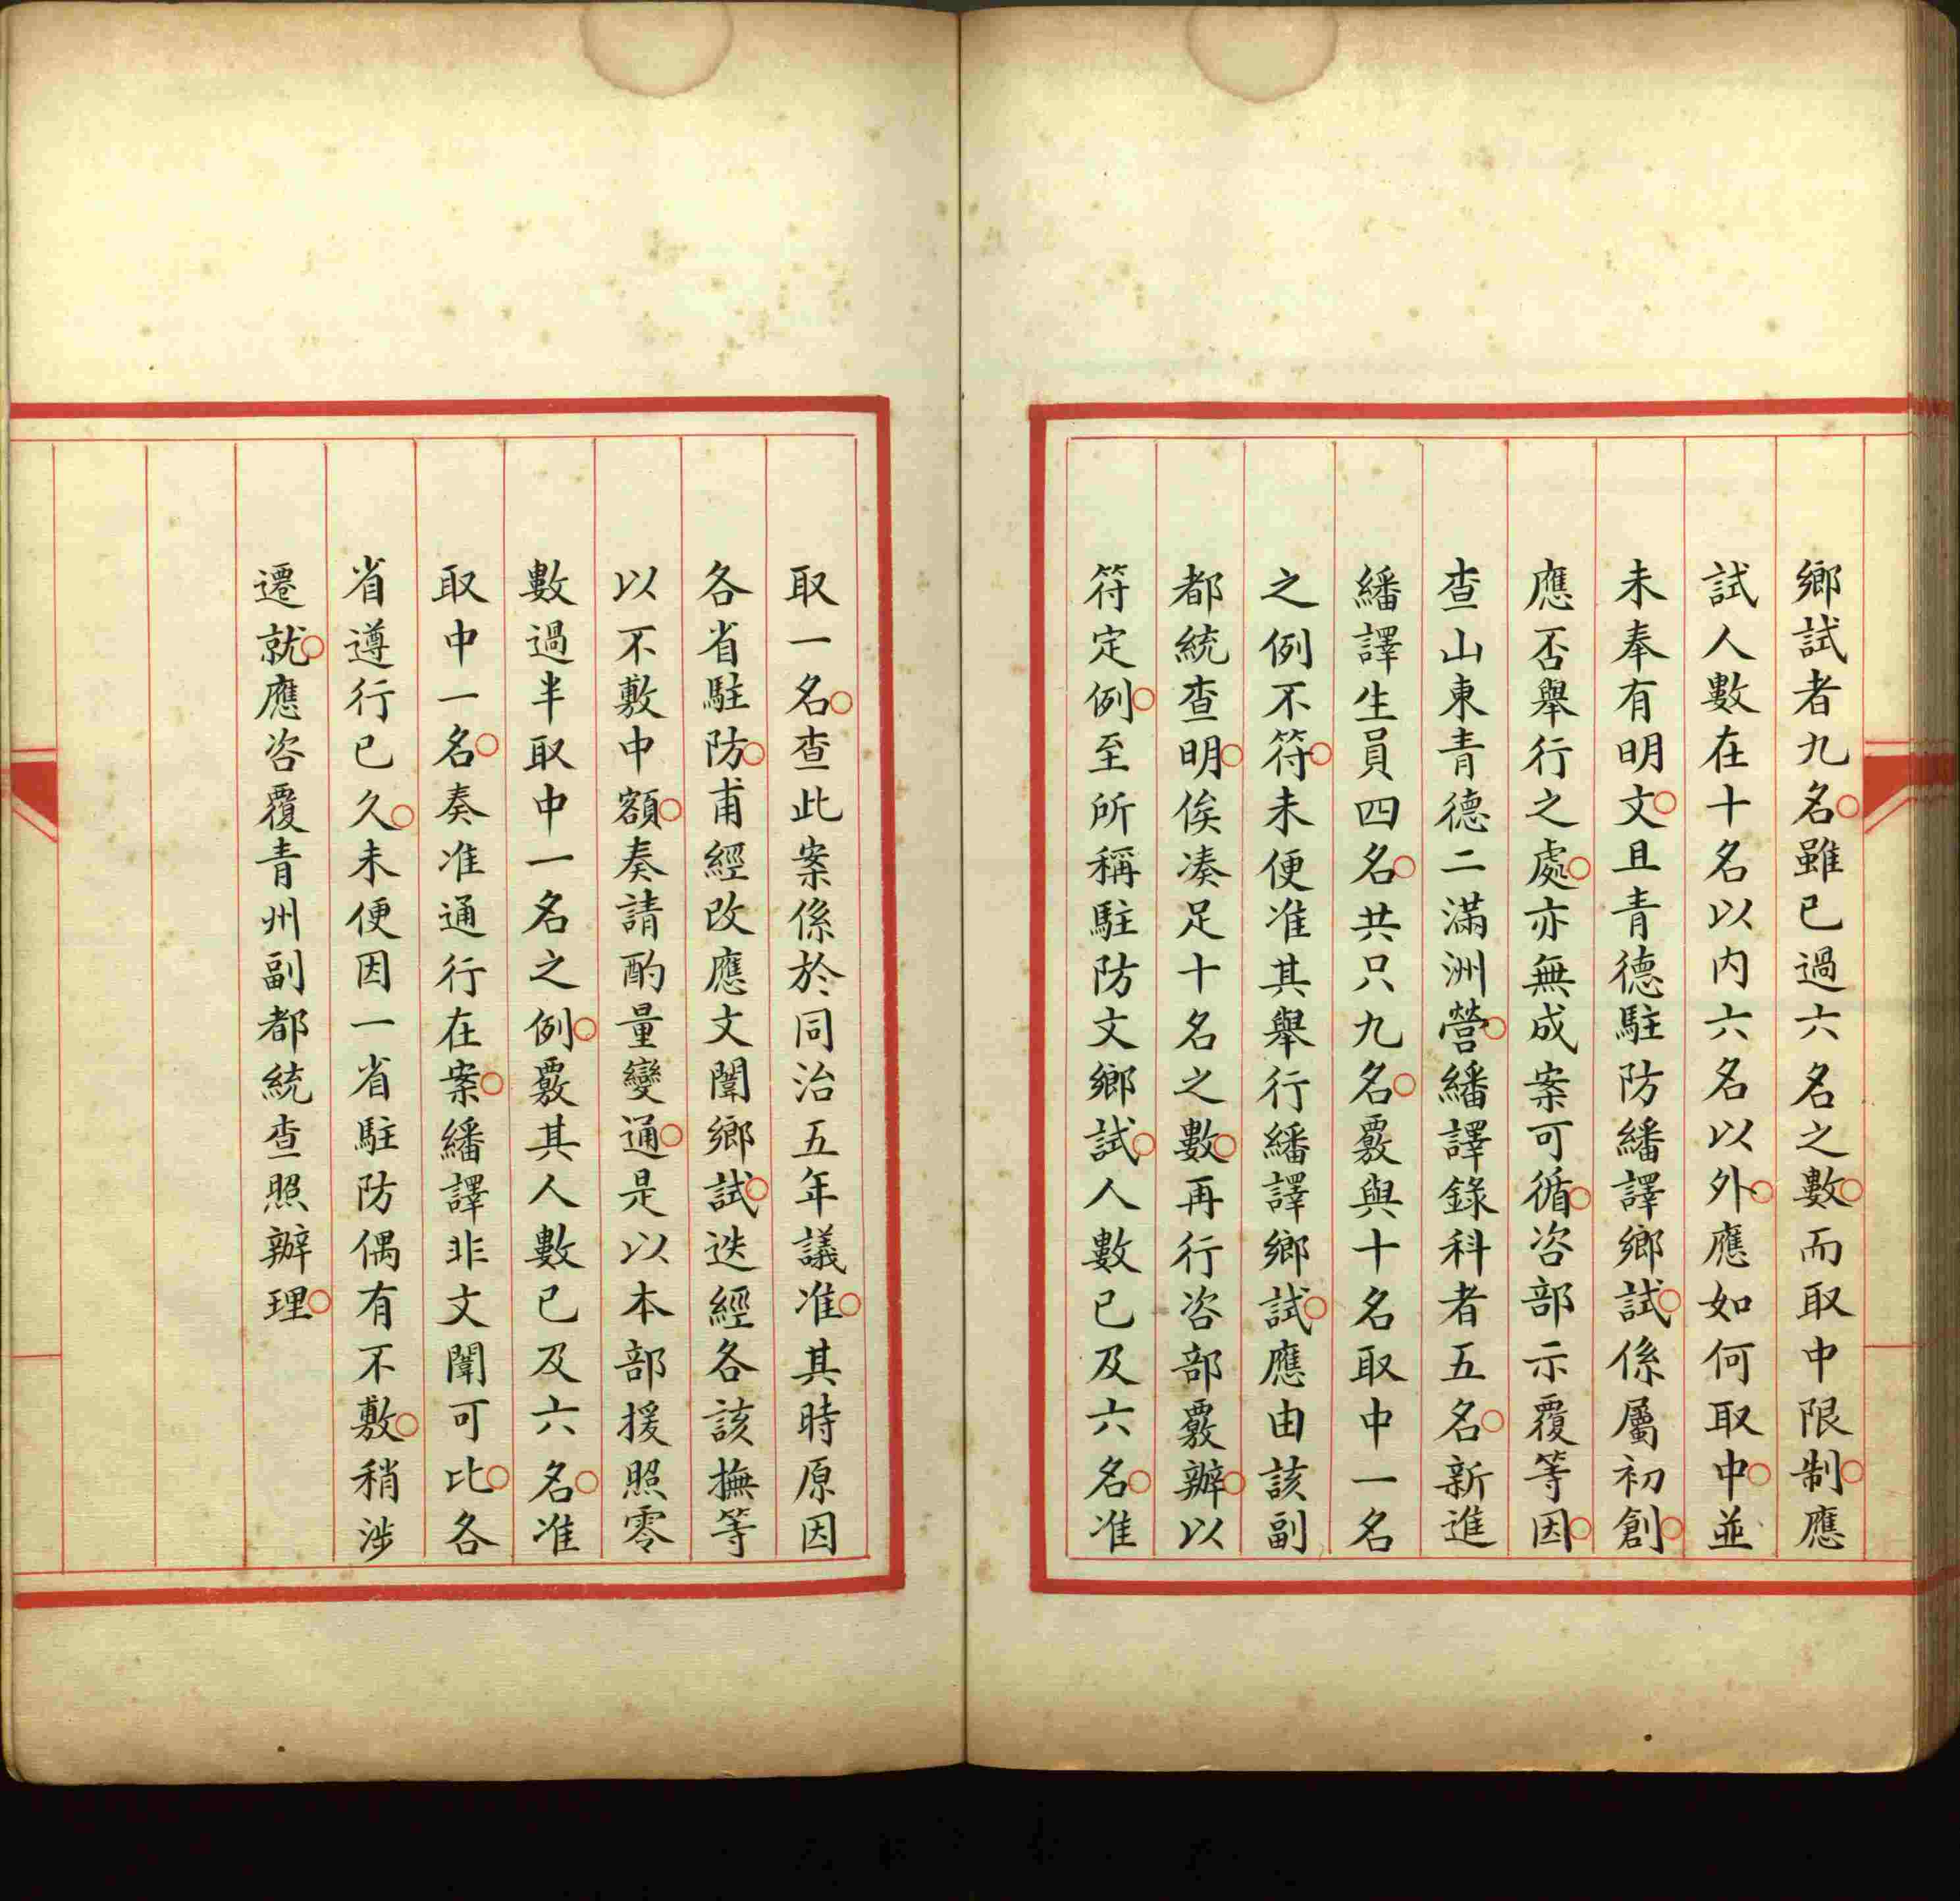 鄉試者九名雖已過六名之數而取中限制應
試人數在十名以內六名以外應如何取中並
未奉有明文且青德駐防繙譯鄉試係屬初創
應否舉行之處亦無成案可循咨部示覆等因
查山東青德二滿洲營繙譯錄科者五名新進
繙譯生員四名共只九名覈與十名取中一名
之例不符未便准其舉行繙譯鄉試應由該副
都統查明俟湊足十名之數再行咨部覈辦以
符定例至所稱駐防文鄉試人數已及六名准
取一名查此案係於同治五年議准其時原因
各省駐防甫經改應文闈鄉試迭經各該撫等
以不敷中額奏請酌量變通是以本部援照零
數過半取中一名之例覈其人數已及六名准
取中一名奏准通行在案繙譯非文闈可比各
省遵行已久未便因一省駐防偶有不敷稍涉
遷就應咨覆青州副都統查照辦理